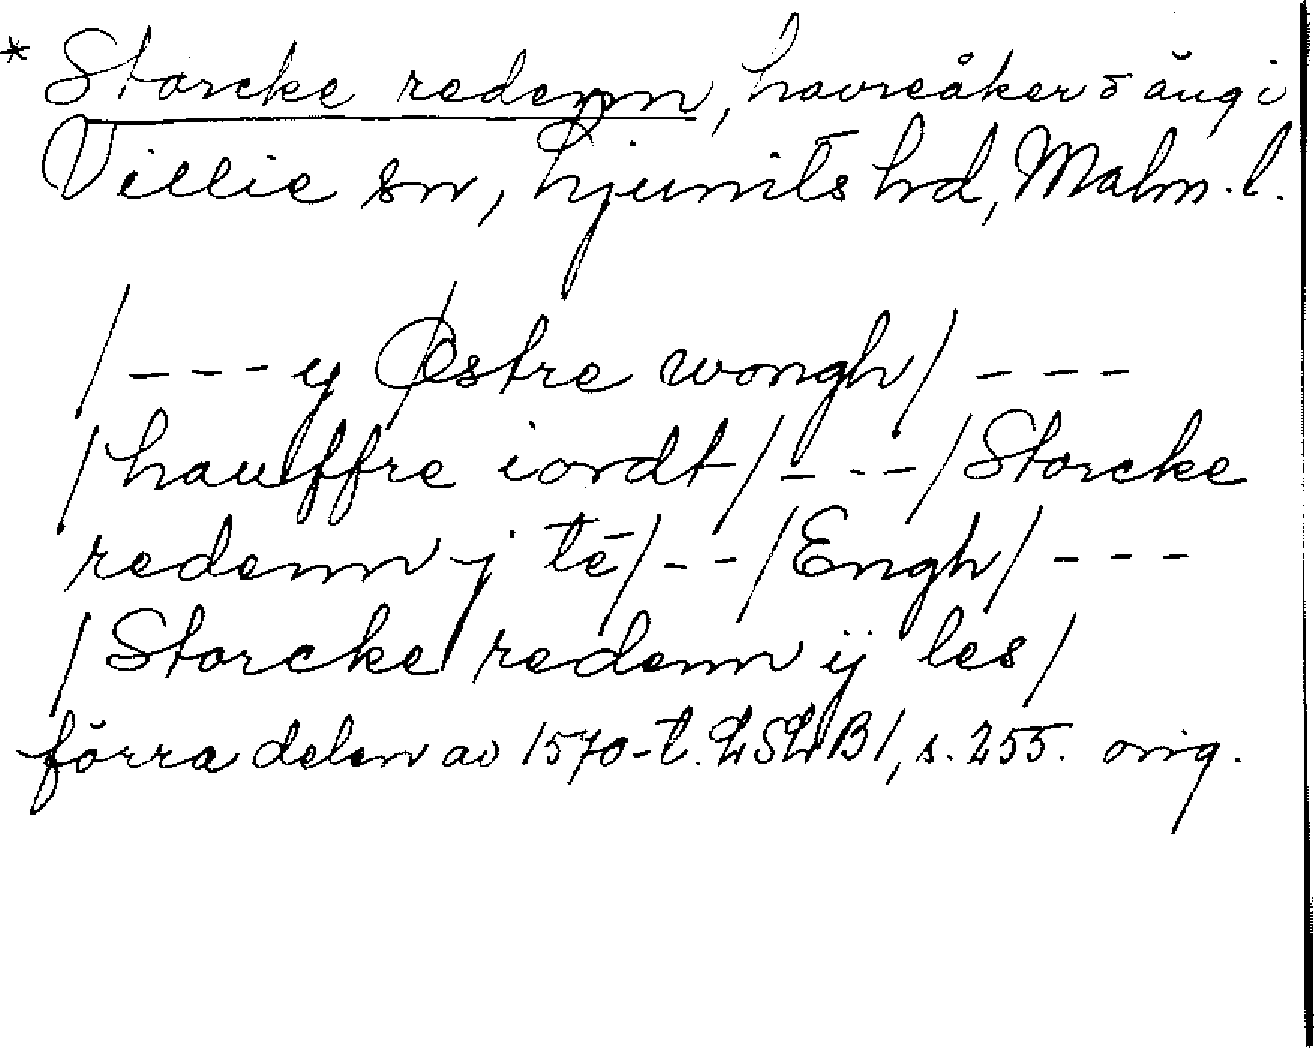 * Storcke redenn, havreåker o äng i
Villie sn, Ljunits hd, Malm. l.
/ - - - y Østre wongh / - - -
/ hauffre iordt / - - - / Storcke
redenn j te / - - / Engh / - - -
/ Storcke redenn ij les /
förra delen av 1570-t. LSLB 1, s. 255. orig.